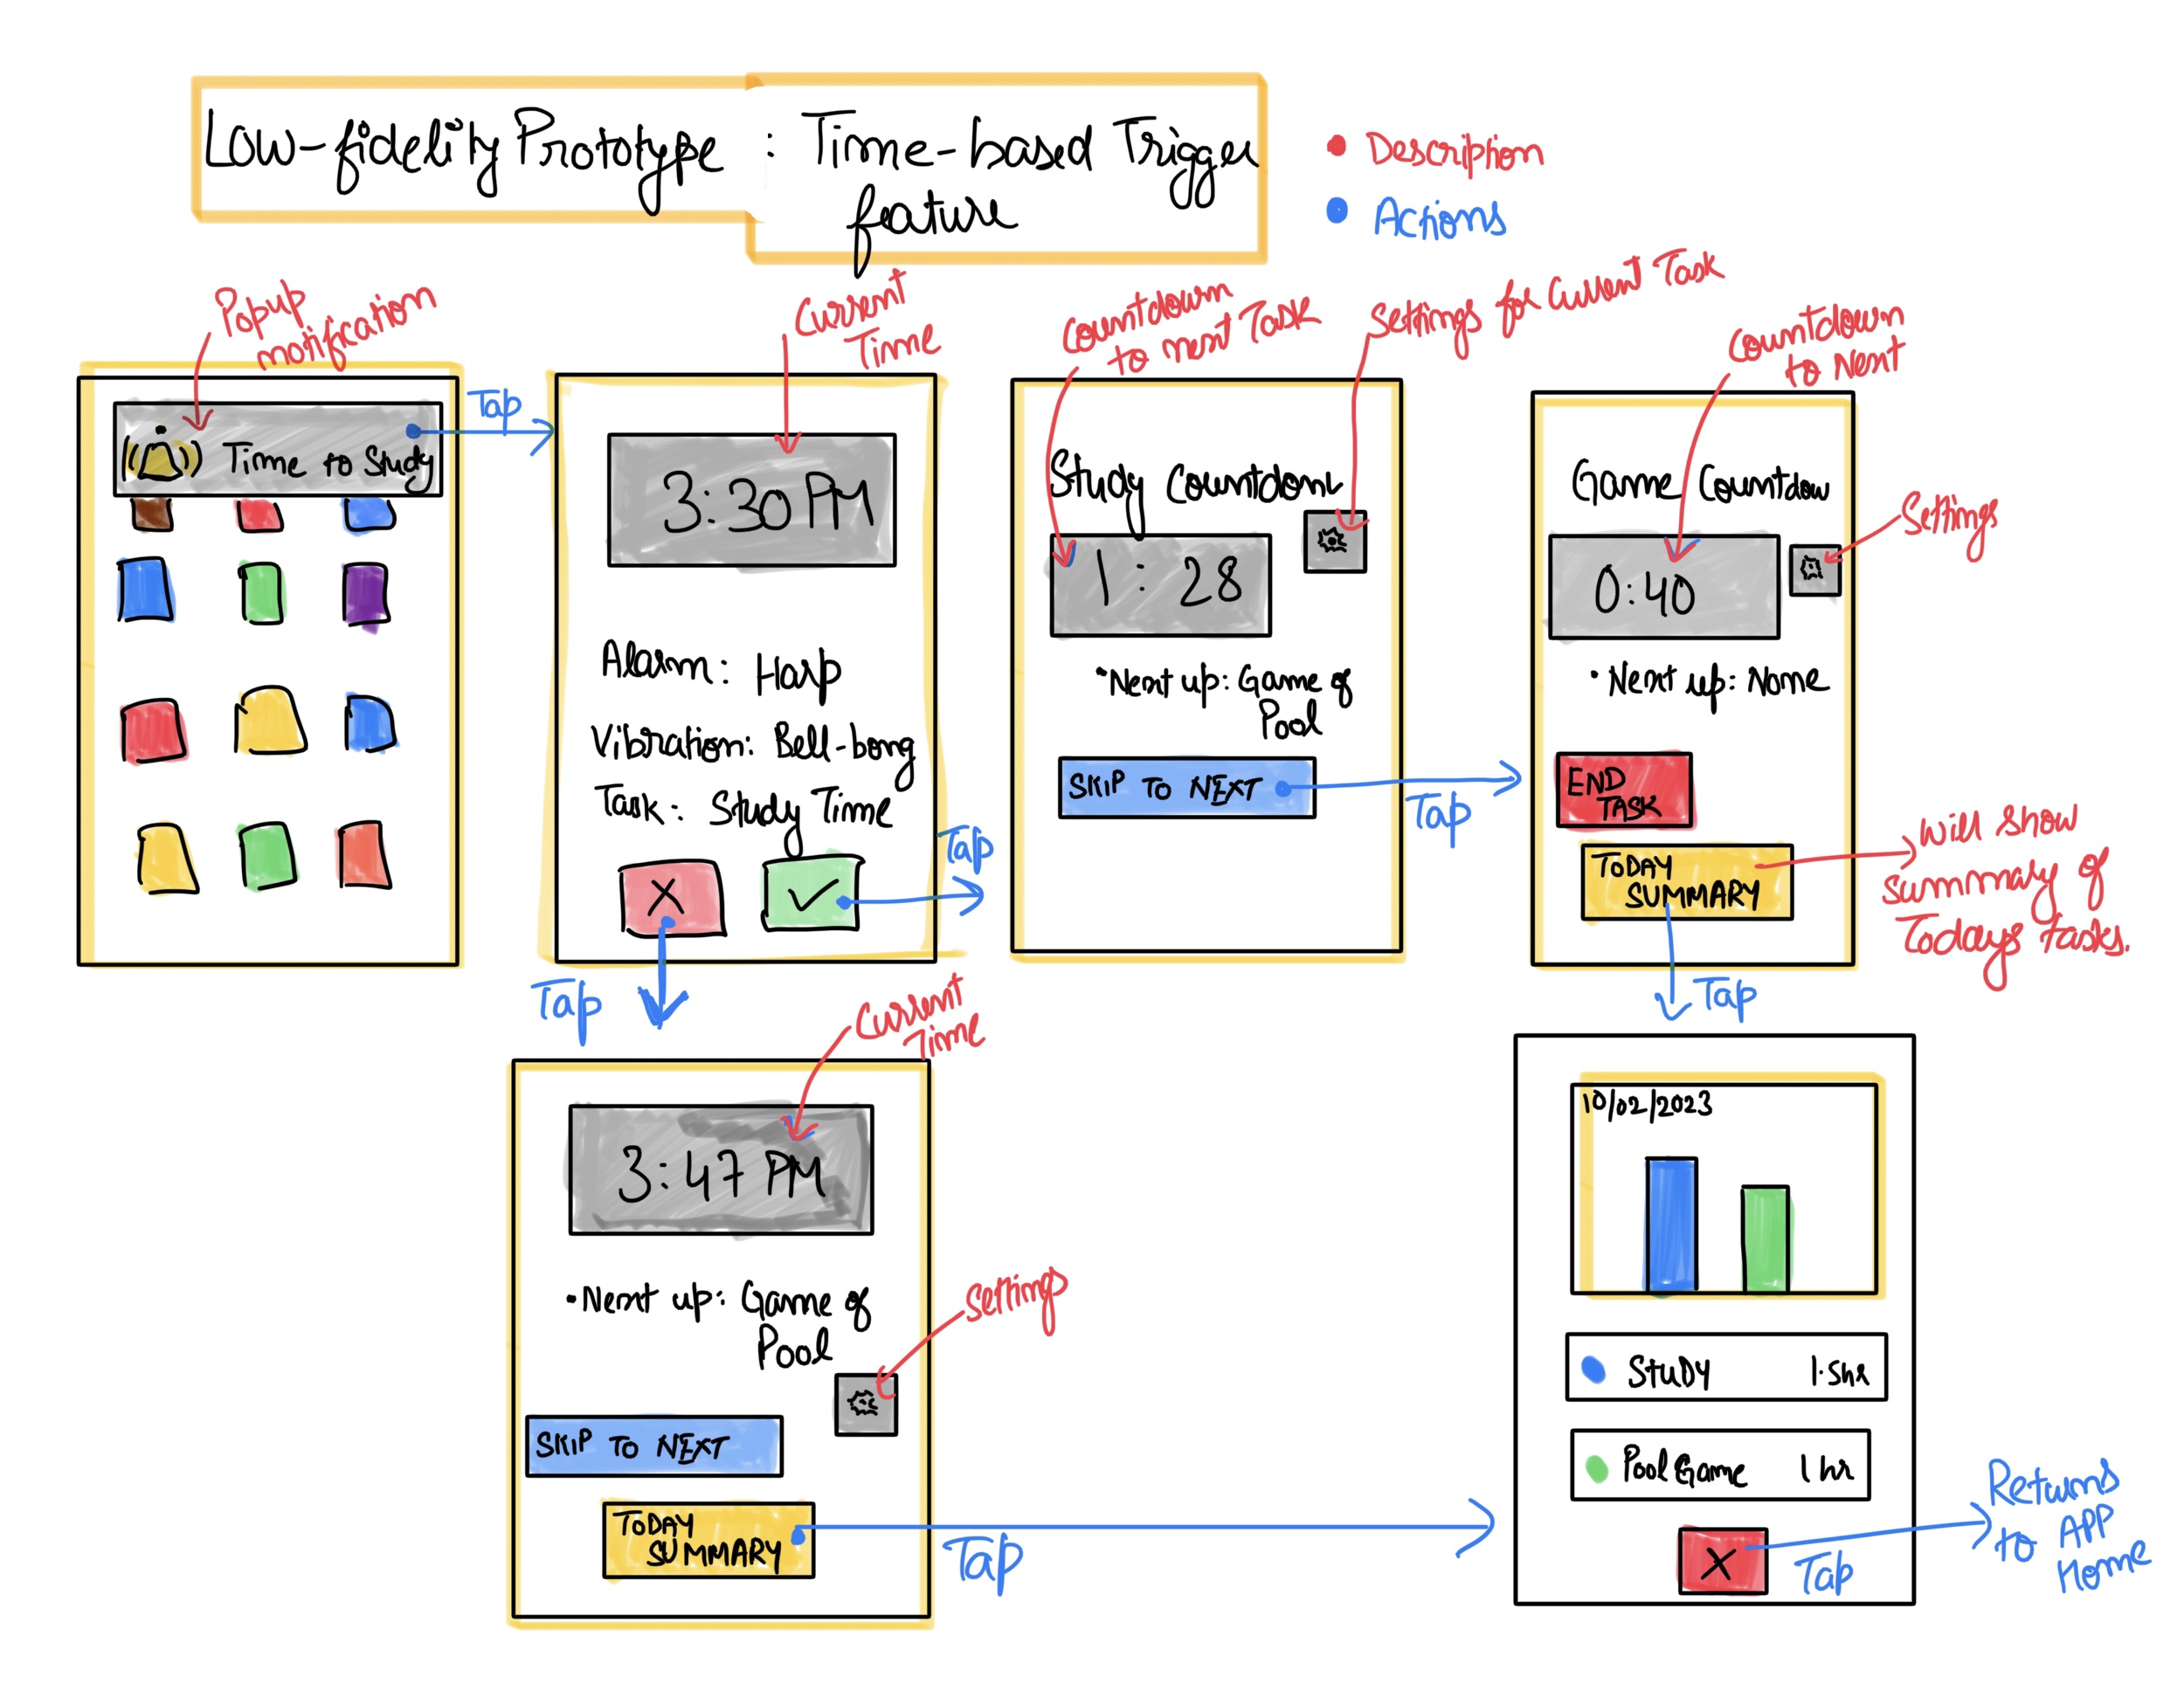 Low-fidelity Prototype : Time-based Trigger
feature
Description
Actions
Popup
notification
Time to Study
Tap
Current
Time
3:30 PM
Alarm: Harp
Vibration: Bell-bong
Task: Study Time
X
Tap
Tap
Countdown
to next Task
Settings for Current Task
Study Countdown
1 : 28
Next up: Game of
Pool
SKIP TO NEXT
Tap
Countdown
to Next
Game Countdow
Settings
0:40
Next up: None
END
TASK
TODAY
SUMMARY
Will show
summary of
Todays tasks.
Tap
Current
Time
3:47 PM
Next up: Game of
Pool
Settings
SKIP TO NEXT
TODAY
SUMMARY
Tap
10/02/2023
STUDY 1.5hr
Pool Game 1 hr
X
Tap
Returns
to APP
Home